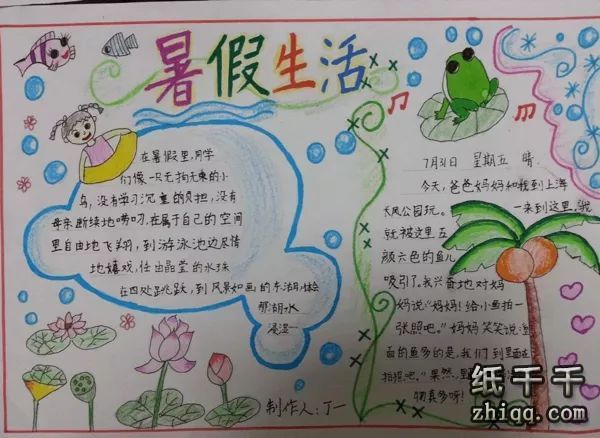 暑假生活
在暑假里,同学
们像一只无拘无束的小
鸟,没有学习沉重的负担,没有
母亲断续地唠叨,在属于自己的空间
里自由地飞翔,到游泳池边尽情
地嬉戏,任出晶莹的水珠
在四处跳跃,到风景如画的东湖,体会
那湖水
制作人:丁一
7月31日 星期五 晴
今天,爸爸妈妈和我到上海
大风公园玩。一来到这里,我
就被这里五
颜六色的鱼儿
吸引了。我兴奋地对妈
妈说“妈妈!给小鱼拍一
张照吧。”妈妈笑笑说:“
面的鱼多的是,我们到里面在
拍照吧。”果然,里
物真多呀!
纸千千
zhiqq.com